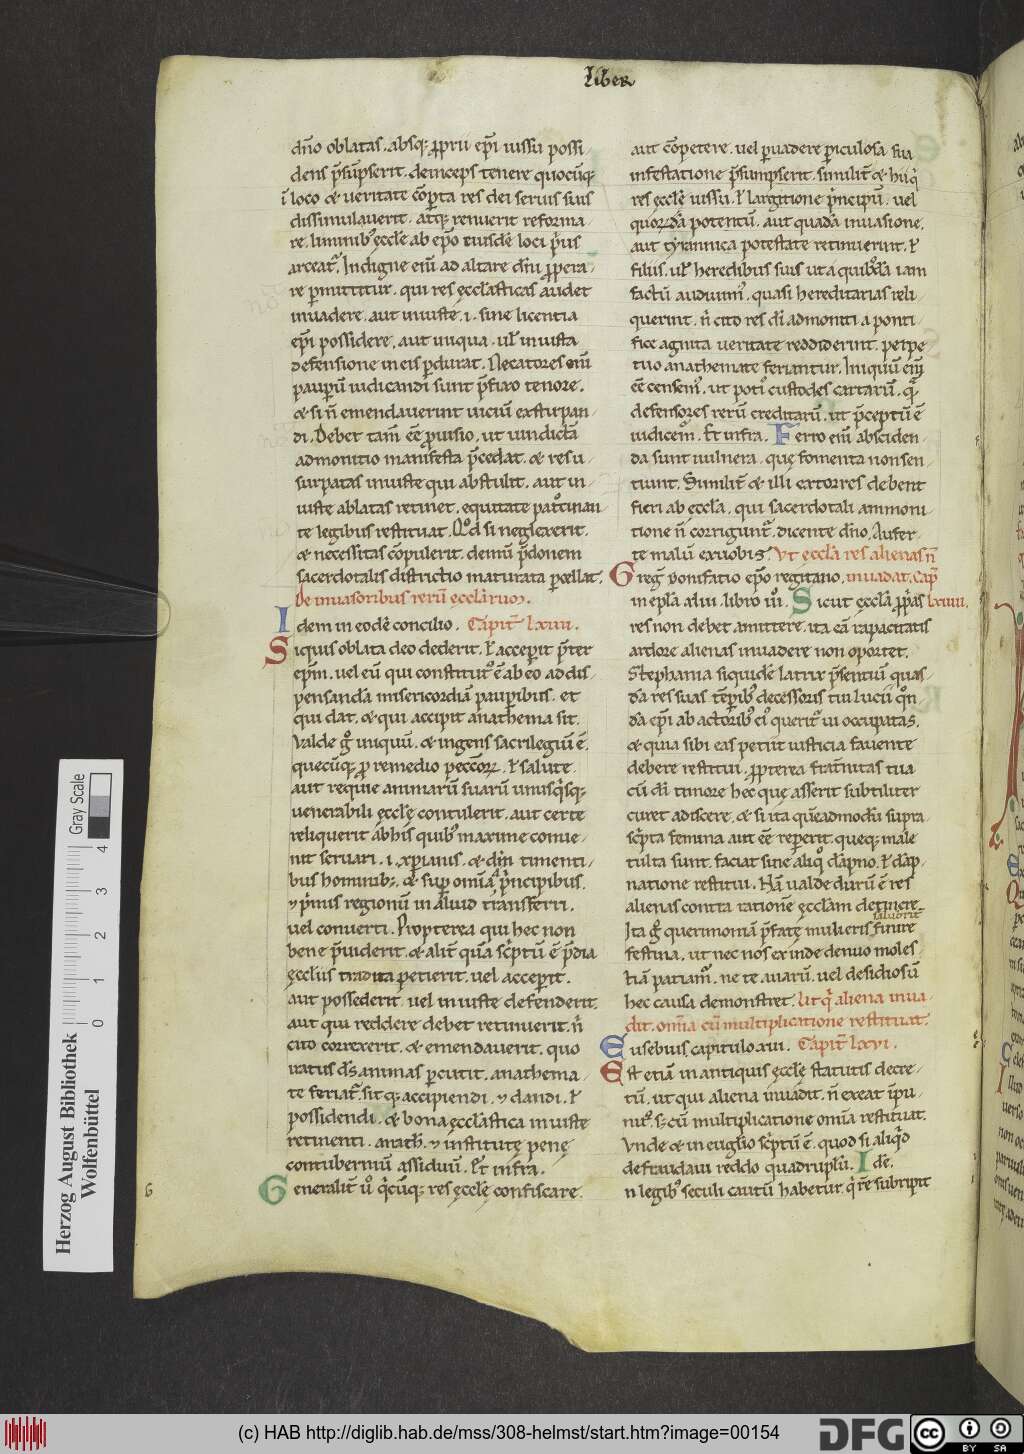 Liber
dn̄o oblatas. absq; ꝓprii ep̄i iussu possi
dens p̄sūpserit. deinceps tenere quocūq;
ī loco & ueritate cōꝑta res dei seruis suis
dissimulauerit. atq; renuerit reforma
re. liminib; ęccłe ab ep̄o eiusdē loci p̄us
arceat᷑. Indigne eni᷑ ad altare dn̄i ꝓpera
re ꝑmittitur. qui res ęcclasticas audet
inuadere. aut iniuste .i. sine licentia
ep̄i possidere. aut iniqua. uł iniusta
defensione in eis ꝑdurat. Necatores eni᷑
pauꝑū iudicandi sunt p̄fixo tenore.
& si n̄ emendauerint uiciū exstirpan
di. Debet tam̄ ēe ꝓuisio. ut uindictā
admonitio manifesta p̄cedat. & res u
surpatas iniuste qui abstulit. aut in
iuste ablatas retinet. equitate patͦcinan
te legibus restituat. Qͦd si neglexerit.
& necessitas cōpulerit. demū p̄donem
sacerdotalis districtio maturata ꝑcellat.
De inuasoribus rerū ecclarum.
Idem in eodē concilio. Capit᷑ lxiiii.
Siquis oblata deo dederit. ł acceperit p̄ter
ep̄m. uel eū qui constitut᷒ ē ab eo ad dis
pensandā misericordiā pauꝑibus. et
qui dat. & qui accipit anathema sit.
Valde gͦ iniquū. & ingens sacrilegiū ē.
quecūq; ꝓ remedio peccoꝝ. ł salute.
aut requie animarū suarū unusqͥsq;
uenerabili ęccłe contulerit. aut certe
reliquerit ab his quib; maxime conue
nit seruari. i. xp̄ianis. & dm̄ timenti
bus hominib;. & suꝑ omīa p̄ncipibus.
⁊ p̄mis regionū in aliud transferri.
uel conuerti. Propterea qui hec non
bene p̄uiderit. & alit᷑ quā sc̄ptū ē p̄dia
ęccliis tradita petierit. uel acceperit.
aut possederit. uel iniuste defenderit.
aut qui reddere debet retinuerit. n̄
cito correxerit. & emendauerit. quo
iratus ds̄ animas ꝑcutit. anathema
te feriat᷑. sitq; accipiendi. ⁊ dandi. ł
possidendi. & bona ęcclastica iniuste
retinenti. anath̄. ⁊ institutę penę
contuberniū assiduū. Et infra.
Generalit᷑ uͦ qͥcūq; res ęccłę confiscare.
aut cōpetere. uel ꝑuadere ꝑiculosa sua
infestatione p̄sumpserit. similit᷑ & hii qͥ
res ęccłe iussu. ł largitione p̄ncipū. uel
quoꝝdā potentū. aut quadā inuasione.
aut tyrannica potestate retinuerint. ł
filiis. uł heredibus suis ut a quib;dā iam
factū audiuim᷒. quasi hereditarias reli
querint. n̄ cito res di᷑ admoniti a ponti
fice agnita ueritate reddiderint. perpe
tuo anathemate feriantur. Iniquū eni᷑
ēe censem᷒. ut poti᷒ custodes cartarū. quā
defensores rerū creditarū. ut p̄ceptū ē
iudicem᷒. Et infra. Ferro eni᷑ absciden
da sunt uulnera. quę fomenta non sen
tiunt. Similit᷑ & illi extorres debent
fieri ab eccła. qui sacerdotali ammoni
tione n̄ corrigunt᷑. dicente dn̄o. Aufer
te malū ex uobis. Vt ęccła res alienas n̄
Greg᷑ bonifatio ep̄o regitano. inuadat. Cap᷑
in epła xliii. libro iii. Sicut ęccła ꝓp̄as lxiiiii.
res non debet amittere. ita eā rapacitatis
ardore alienas inuadere non oportet.
Stephania siquidē latrix p̄sentiū quas
dā res suas tēporib; decessoris tui lucii qͦn
dā ep̄i ab actorib; ei᷒ querit᷑ ui occupatas.
& quia sibi eas petiit iusticia fauente
debere restitui. ꝓpterea frat᷑nitas tua
cū di᷑ timore hec quę asserit subtiliter
curet adiscere. & si ita quēadmodū supra
sc̄pta femina aut ēe reꝑerit. queq; male
tulta sunt. faciat sine aliqͦ dāpno. ł dāp
natione restitui. Nā ualde durū ē res
alienas contra rationē ęccłam detinere.
Ita gͦ querimoniā p̄fatę mulieris finire
saluberit
festina. ut nec nos exinde denuo moles
tiā patiam᷑. ne te auarū. uel desidiosū
hec causa demonstret. Ut qͥ aliena inua
dit. omīa cū multiplicatione restituat.
Eusebius capitulo xiii. Capit᷑ lxvi.
Est etiā in antiquis ęccłe statutis decre
tū. ut qui aliena inuadit. n̄ exeat īpu
nit᷒. s; cū multiplicatione omīa restituat.
Vnde & in euglīo sc̄ptū ē. quod si aliqͥd
defraudaui reddo quadruplū. Idē.
In legib; seculi cautū habetur. qͥ rē subripit
6
Herzog August Bibliothek
Wolfenbüttel
Gray Scale
0 1 2 3 4
(c) HAB http://diglib.hab.de/mss/308-helmst/start.htm?image=00154
DFG
cc BY SA